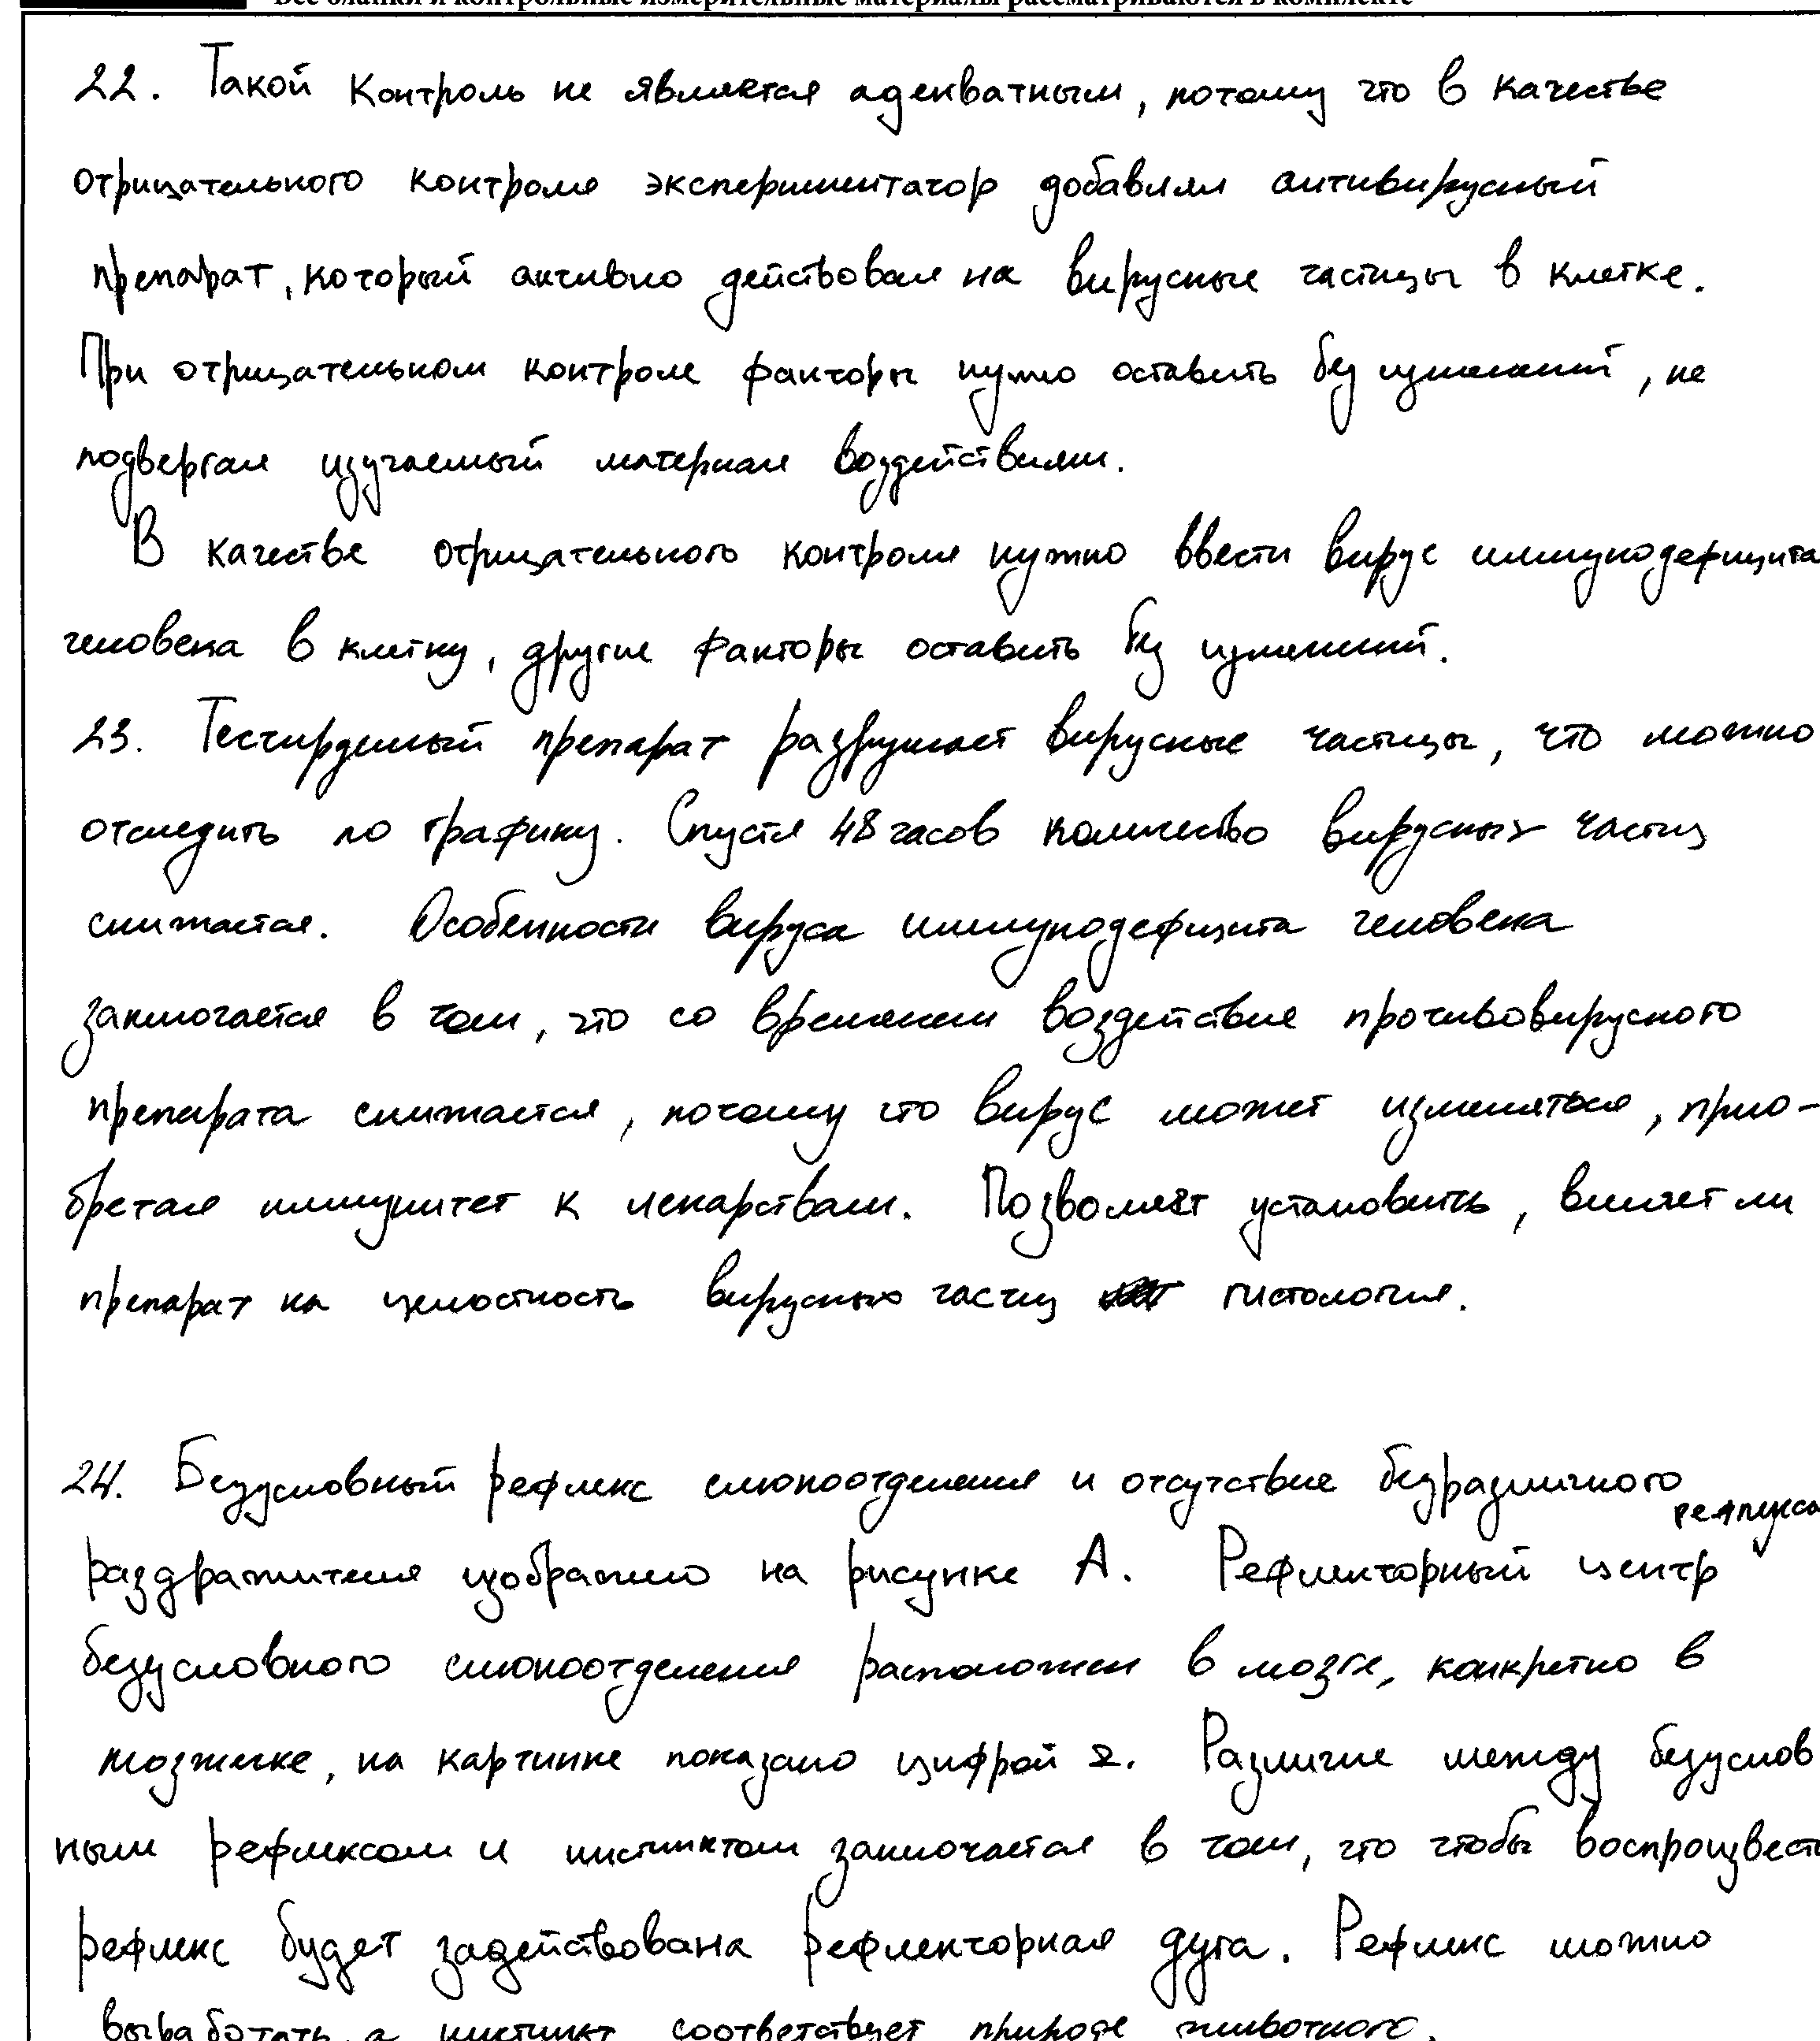 Все бланки и контрольные измерительные материалы рассматриваются в комплекте
22. Такой контроль не является адекватным, потому что в качестве
отрицательного контроля экспериментатор добавлял антивирусный
препарат, который активно действовал на вирусные частицы в клетке.
При отрицательном контроле факторы нужно оставить без изменений, не
подвергая изучаемый материал воздействиям.
В качестве отрицательного контроля нужно ввести вирус иммунодефицита
человека в клетку, другие факторы оставить без изменений.
23. Тестируемый препарат разрушает вирусные частицы, что можно
отследить по графику. Спустя 48 часов количество вирусных частиц
снижается. Особенности вируса иммунодефицита человека
заключается в том, что со временем воздействие противовирусного
препарата снижается, потому что вирус может изменяться, прио-
бретая иммунитет к лекарствам. Позволяет установить, влияет ли
препарат на целостность вирусных частиц гистология.
24. Безусловный рефлекс слюноотделения и отсутствие безразличного
раздражителя изображено на рисунке А. Рефлекторный центр рефлекса
безусловного слюноотделения расположен в мозге, конкретно в
мозжечке, на картинке показано цифрой 2. Различие между безуслов
ным рефлексом и инстинктом заключается в том, что чтобы воспроизвести
рефлекс будет задействована рефлекторная дуга. Рефлекс можно
выработать, а инстинкт соответствует природе животного.